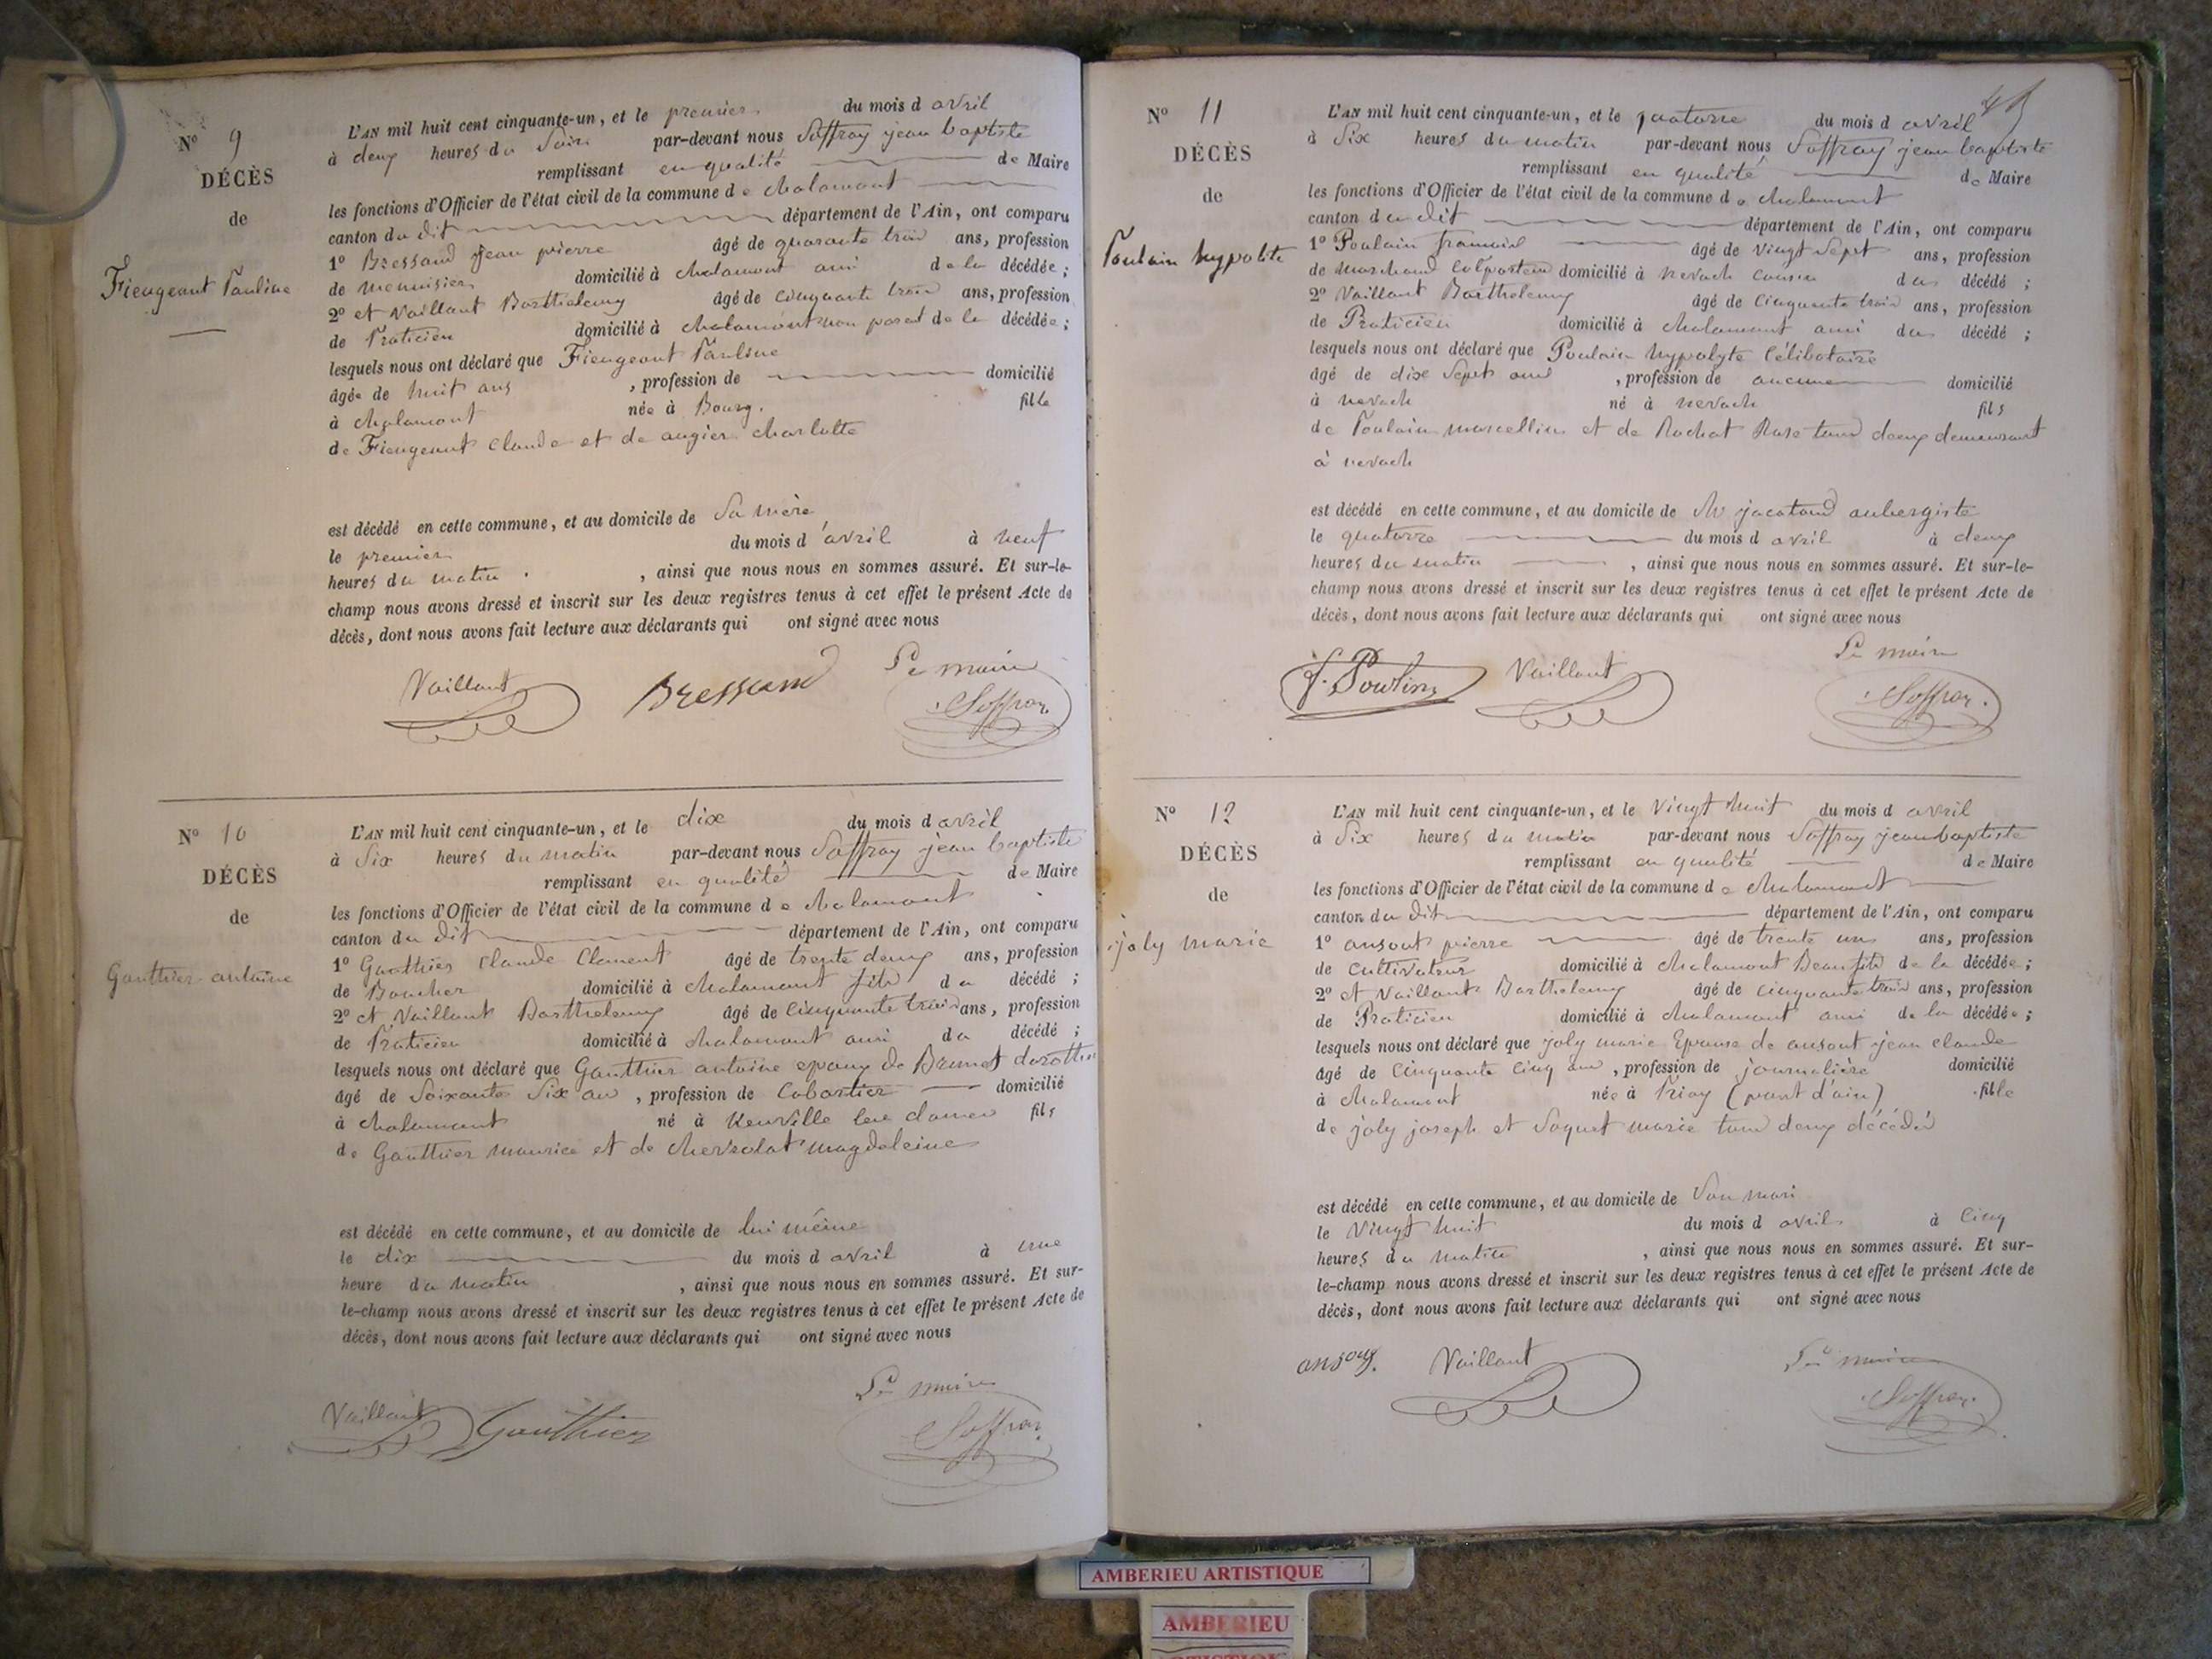 N° 9
DÉCÈS
de
Fieugeant Pauline
L'AN mil huit cent cinquante-un, et le premier du mois d avril
à deux heures du Soir par-devant nous Soffray jean baptiste
remplissant en qualité de Maire
les fonctions d'Officier de l'état civil de la commune de chalamont
canton du dit département de l'Ain, ont comparu
1° Bressand jean pierre âgé de quarante trois ans, profession
de menuisier domicilié à chalamont ami de la décédée;
2° et Vaillant Barthelemy âgé de Cinquante trois ans, profession
de Praticien domicilié à chalamont non parent de la décédée;
lesquels nous ont déclaré que Fieugeant Pauline
âgée de huit ans, profession de domicilié
à chalamont née à Bourg. fille
de Fieugeant claude et de augier charlotte
est décédé en cette commune, et au domicile de Sa mère
le premier du mois d'avril à neuf
heures du matin, ainsi que nous nous en sommes assuré. Et sur-le-
champ nous avons dressé et inscrit sur les deux registres tenus à cet effet le présent Acte de
décès, dont nous avons fait lecture aux déclarants qui ont signé avec nous
Le maire
Vaillant Bressand Soffray
N° 10
DÉCÈS
de
Gauthier antoine
L'AN mil huit cent cinquante-un, et le dix du mois d avril
à Six heures du matin par-devant nous Soffray jean baptiste
remplissant en qualité de Maire
les fonctions d'Officier de l'état civil de la commune de chalamont
canton du dit département de l'Ain, ont comparu
1° Gauthier Claude Clement âgé de trente deux ans, profession
de Boucher domicilié à chalamont fils du décédé;
2° et Vaillant Barthelemy âgé de Cinquante trois ans, profession
de Praticien domicilié à chalamont ami du décédé;
lesquels nous ont déclaré que Gauthier antoine epoux de Brunet dorothée
âgé de Soixante Six ans, profession de Cabartier domicilié
à chalamont né à Neuville les dames fils
de Gauthier maurice et de chervolat magdeleine
est décédé en cette commune, et au domicile de lui même
le dix du mois d avril à une
heure du matin, ainsi que nous nous en sommes assuré. Et sur-
le-champ nous avons dressé et inscrit sur les deux registres tenus à cet effet le présent Acte de
décès, dont nous avons fait lecture aux déclarants qui ont signé avec nous
Le maire
Vaillant Gauthier Soffray
N° 11
DÉCÈS
de
Poulain hypolite
L'AN mil huit cent cinquante-un, et le quatorze du mois d avril
à Six heures du matin par-devant nous Soffray jean baptiste
remplissant en qualité de Maire
les fonctions d'Officier de l'état civil de la commune de chalamont
canton du dit département de l'Ain, ont comparu
1° Poulain francois âgé de Vingt Sept ans, profession
de marchand Colporteur domicilié à nevach cousin du décédé;
2° Vaillant Barthelemy âgé de Cinquante trois ans, profession
de Praticien domicilié à chalamont ami du décédé;
lesquels nous ont déclaré que Poulain hypolyte Célibataire
âgé de dix Sept ans, profession de aucune domicilié
à nevach né à nevach fils
de Poulain marcellin et de Rochat Rose tous deux demeurant
à nevach
est décédé en cette commune, et au domicile de Mr jacatond aubergiste
le quatorze du mois d avril à deux
heures du matin, ainsi que nous nous en sommes assuré. Et sur-le-
champ nous avons dressé et inscrit sur les deux registres tenus à cet effet le présent Acte de
décès, dont nous avons fait lecture aux déclarants qui ont signé avec nous
Le maire
f. Poulin Vaillant Soffray
N° 12
DÉCÈS
de
joly marie
L'AN mil huit cent cinquante-un, et le Vingt huit du mois d avril
à Six heures du matin par-devant nous Soffray jean baptiste
remplissant en qualité de Maire
les fonctions d'Officier de l'état civil de la commune de chalamont
canton du dit département de l'Ain, ont comparu
1° ansout pierre âgé de trente un ans, profession
de Cultivateur domicilié à chalamont Beau fils de la décédée;
2° et Vaillant Barthelemy âgé de Cinquante trois ans, profession
de Praticien domicilié à chalamont ami de la décédée;
lesquels nous ont déclaré que joly marie Epouse de ansout jean claude
âgé de Cinquante Cinq ans, profession de journalière domicilié
à chalamont née à Priay (pont d'ain) fille
de joly joseph et Soquet marie tous deux décédés
est décédé en cette commune, et au domicile de Son mari
le Vingt huit du mois d avril à Cinq
heures du matin, ainsi que nous nous en sommes assuré. Et sur-
le-champ nous avons dressé et inscrit sur les deux registres tenus à cet effet le présent Acte de
décès, dont nous avons fait lecture aux déclarants qui ont signé avec nous
Le maire
ansoux. Vaillant Soffray
AMBERIEU ARTISTIQUE
AMBERIEU